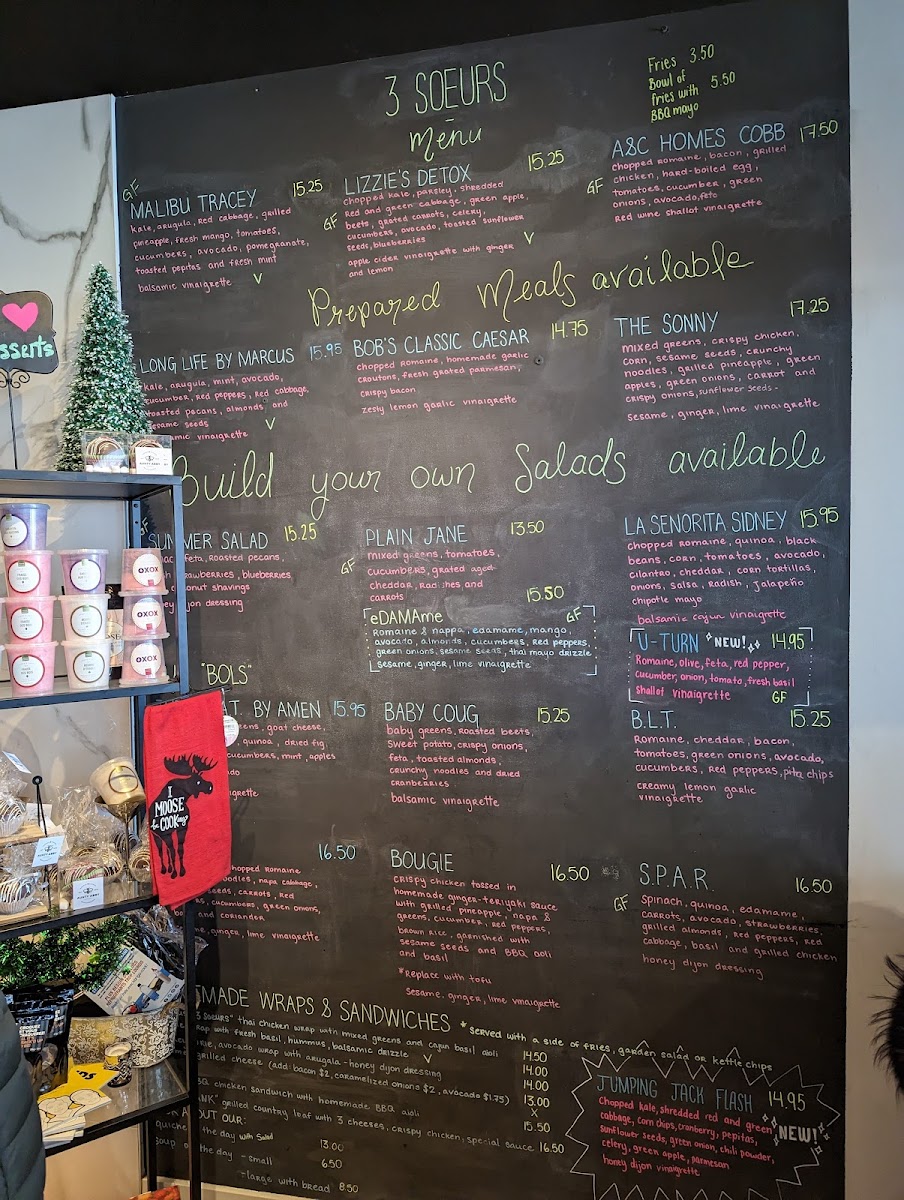 3 SOEURS
menu
Fries 3.50
Bowl of 5.50
fries with
BBQ mayo
GF
MALIBU TRACEY 15.25
kale, arugula, red cabbage, grilled
pineapple, fresh mango, tomatoes,
cucumbers, avocado, pomegranate,
toasted pepitas and fresh mint
balsamic vinaigrette V
LIZZIE'S DETOX 15.25
chopped kale, parsley, shredded
red and green cabbage, green apple,
GF beets, grated carrots, celery,
cucumbers, avocado, toasted sunflower
seeds, blueberries
apple cider vinaigrette with ginger V
and lemon
A&C HOMES COBB 17.50
chopped romaine, bacon, grilled
GF chicken, hard-boiled egg,
tomatoes, cucumber, green
onions, avocado, feta
red wine shallot vinaigrette
Prepared Meals available
LONG LIFE BY MARCUS 15.95
kale, arugula, mint, avocado,
cucumber, red peppers, red cabbage,
toasted pecans, almonds, and
sesame seeds
vinaigrette V
BOB'S CLASSIC CAESAR 14.75
chopped romaine, homemade garlic
croutons, fresh grated parmesan,
crispy bacon
zesty lemon garlic vinaigrette
THE SONNY 17.25
mixed greens, crispy chicken,
corn, sesame seeds, crunchy
noodles, grilled pineapple, green
apples, green onions, carrot and
crispy onions, sunflower seeds.
sesame, ginger, lime vinaigrette
Build your own Salads available
GF
SUMMER SALAD 15.25
feta, roasted pecans,
strawberries, blueberries
coconut shavings
dijon dressing
PLAIN JANE 13.50
mixed greens, tomatoes,
GF cucumbers, grated aged
cheddar, radishes and
carrots
LA SENORITA SIDNEY 15.95
chopped romaine, quinoa, black
beans, corn, tomatoes, avocado,
cilantro, cheddar, corn tortillas,
onions, salsa, radish, jalapeño
chipotle mayo
balsamic cajun vinaigrette
15.50
eDAMAme GF
Romaine & nappa, edamame, mango,
avocado, almonds, cucumbers, red peppers,
green onions, sesame seeds, thai mayo drizzle
sesame, ginger, lime vinaigrette
U-TURN NEW! 14.95
Romaine, olive, feta, red pepper,
cucumber, onion, tomato, fresh basil
shallot vinaigrette GF
"BOLS"
BY AMEN 15.95
goat cheese,
quinoa, dried fig
cucumbers, mint, apples
BABY COUG 15.25
baby greens, roasted beets,
sweet potato, crispy onions,
feta, toasted almonds,
crunchy noodles and dried
cranberries
balsamic vinaigrette
B.L.T. 15.25
Romaine, cheddar, bacon,
tomatoes, green onions, avocado,
cucumbers, red peppers, pita chips
creamy lemon garlic
vinaigrette
16.50
chopped romaine
noodles, napa cabbage,
seeds, carrots, red
cucumbers, green onions,
and coriander
ginger, lime vinaigrette
BOUGIE 16.50
crispy chicken tossed in
homemade ginger-teriyaki sauce
with grilled pineapple, napa &
greens, cucumber, red peppers,
brown rice, garnished with
sesame seeds and BBQ aoli
and basil
*Replace with tofu
sesame, ginger, lime vinaigrette
S.P.A.R. 16.50
GF spinach, quinoa, edamame,
carrots, avocado, strawberries,
grilled almonds, red peppers, red
cabbage, basil and grilled chicken
honey dijon dressing
MADE WRAPS & SANDWICHES *served with a side of fries, garden salad or kettle chips
3 SOEURS" thai chicken wrap with mixed greens and cajun basil aioli 14.50
wrap with fresh basil, hummus, balsamic drizzle V 14.00
avocado wrap with arugala - honey dijon dressing 14.00
grilled cheese (add: bacon $2, caramelized onions $2, avocado $1.75) 13.00
x
chicken sandwich with homemade BBQ aioli 15.50
grilled country loaf with 3 cheeses, crispy chicken, special sauce 16.50
ABOUT OUR:
quiche of the day with salad 13.00
soup of the day - small 6.50
- large with bread 8.50
JUMPING JACK FLASH 14.95
Chopped kale, shredded red and green
cabbage, corn chips, cranberry, pepitas, NEW!
sunflower seeds, green onion, chili powder,
celery, green apple, parmesan
honey dijon vinaigrette
sserts
OXOX
OXOX
OXOX
I
MOOSE
be COOKing